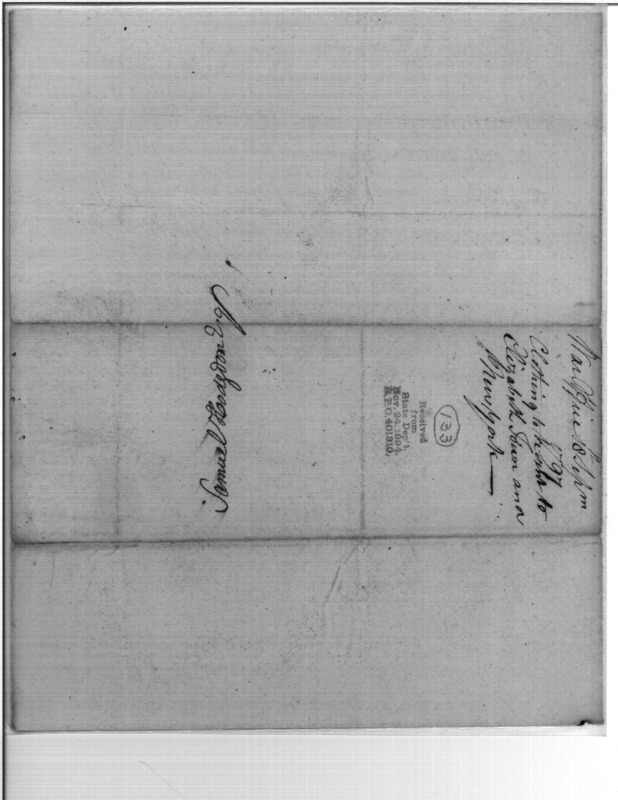 War Office 18 Sep
97
Clothing to be sent to
Elizabeth Town and
New York —
133
Received
from
State Dep't,
Nov. 24, 1894,
R.P.O. 401310.
Samuel Hodgdon Esq